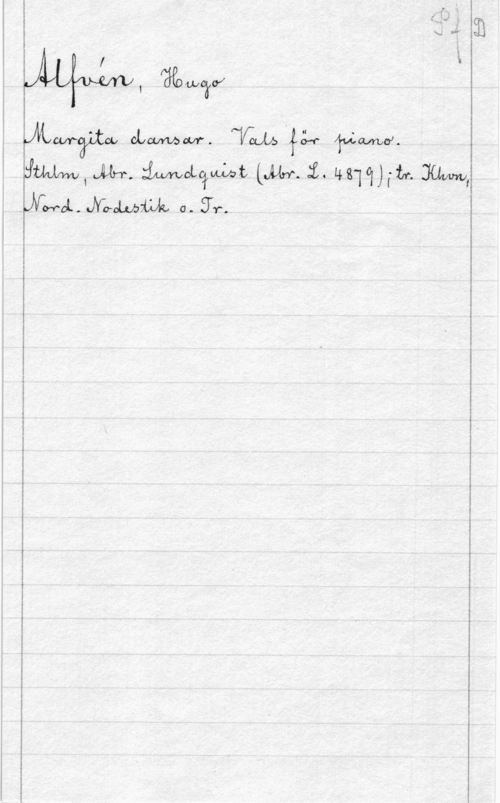 D
Alfvén, Hugo
Margita dansar. Vals för piano.
Sthlm, Abr. Lundquist (Abr. L. 4879); tr. Khvn,
Nord. Nodestik o. Tr.